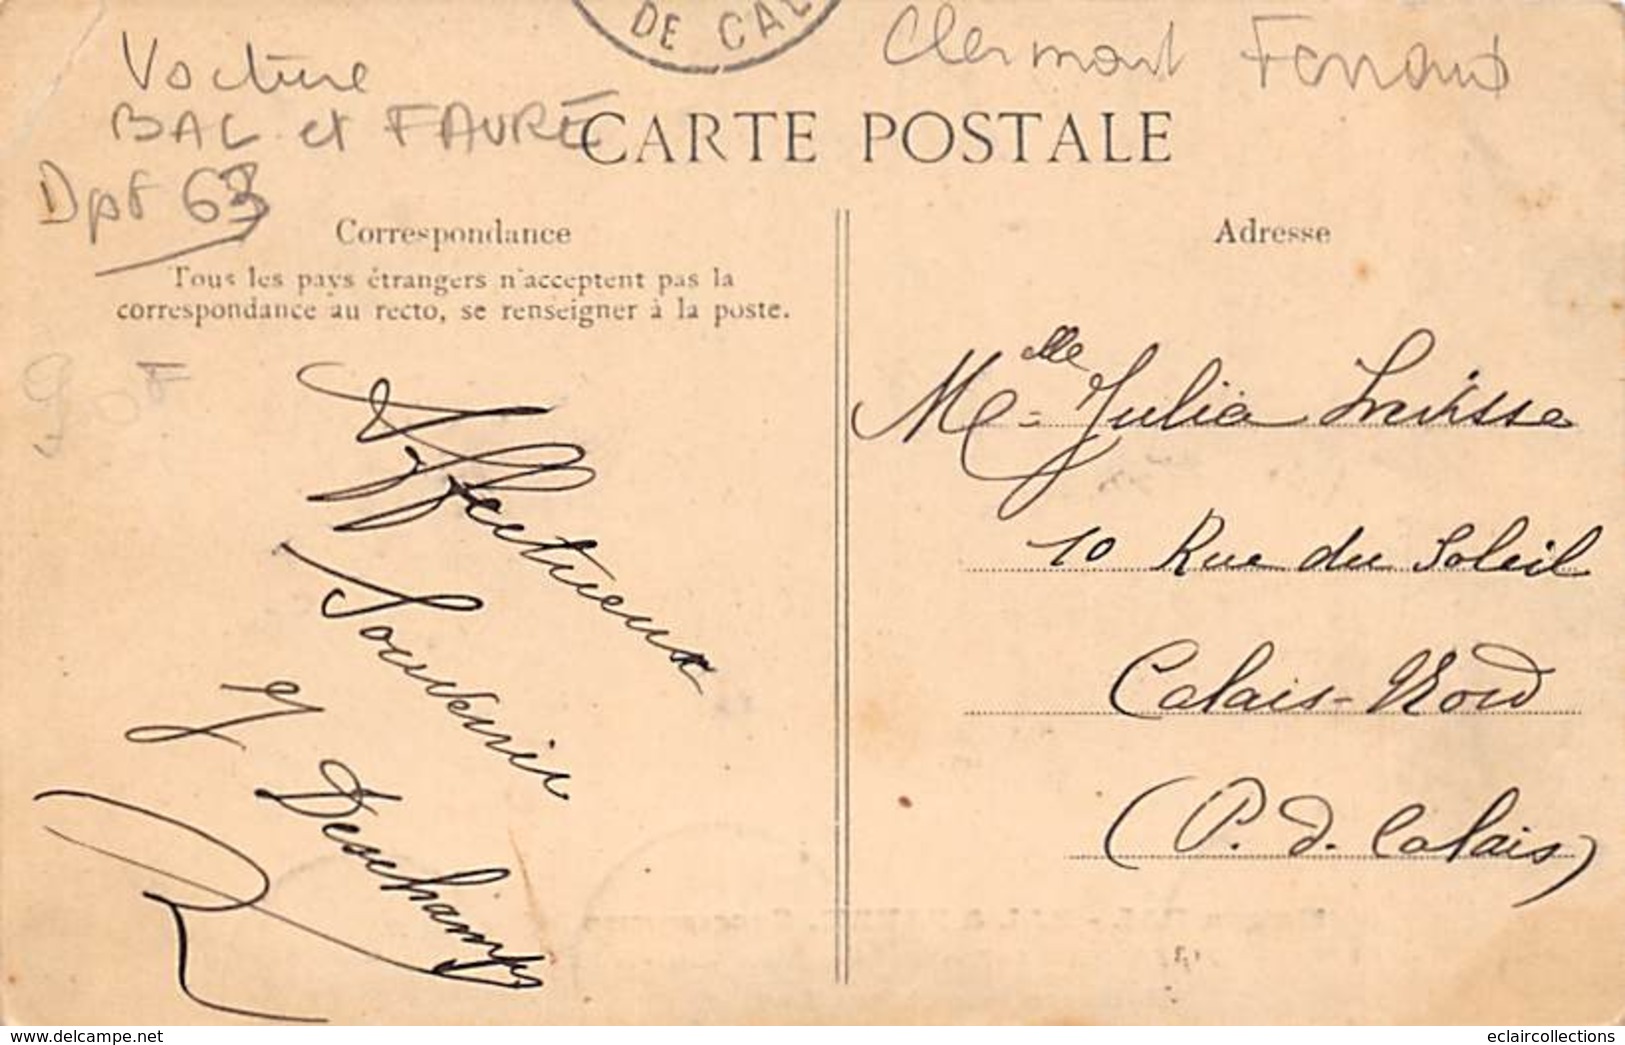 DE CAL
Clermont Ferrand
Voiture
BAL et FAURE
CARTE POSTALE
Dpt 63
Correspondance
Adresse
Tous les pays étrangers n'acceptent pas la
correspondance au recto, se renseigner à la poste.
900F
Affectueux
Souvenir
J Deschamps
Melle Julia
10 Rue du Soleil
Calais-Nord
(P. d. Calais)
eclaircollections
www.delcampe.net